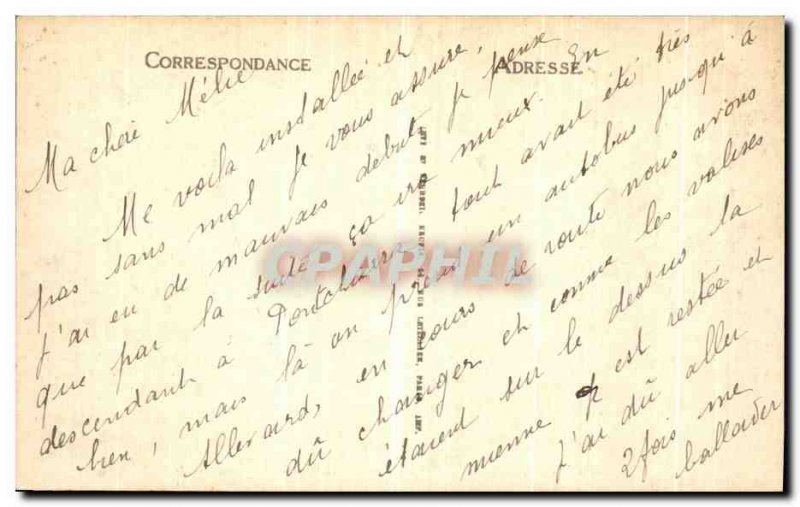 CORRESPONDANCE
ADRESSE
Ma chère Mélie
Me voila installée et
pas sans mal je vous assure,
J'ai eu de mauvais debuts je pense
que par la suite ça ira mieux. En
descendant à Pontcharra tout avait été très
bien, mais là on prend un autobus jusqu'à
Allevard, en cours de route nous avons
dû changer et comme les valises
étaient sur le dessus la
mienne y est restée et
J'ai dû aller
2 fois me
ballader
CPAPHIL
LEVY ET NEURDEIN RÉUNIS, 44, RUE LETELLIER, PARIS